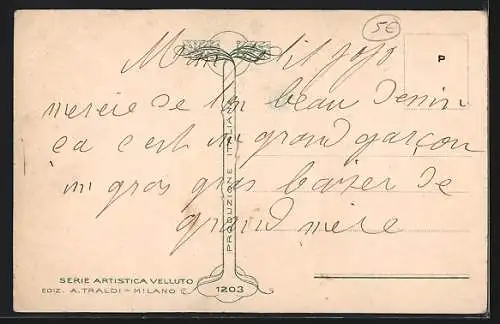 5€
P
Mon petit jojo
mercie de ton beau dessin
ça c'est un grand garçon
un gros gros baiser de
grand mère
PRODUZIONE ITALIANA
SERIE ARTISTICA VELLUTO
EDIZ. A. TRALDI - MILANO
1203